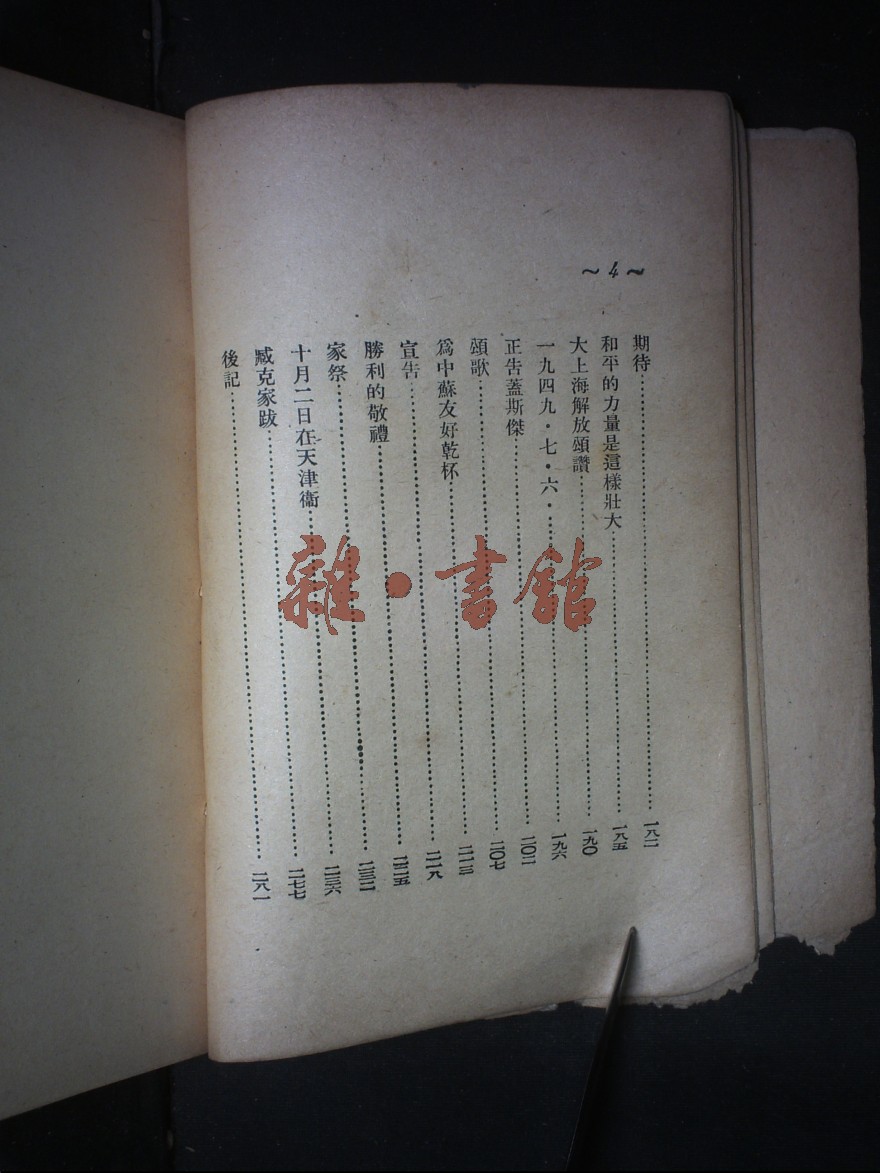 ～4～
期待……一八一
和平的力量是這樣壯大……一八五
大上海解放頌讚……一九〇
一九四九・七・六……一九六
正告蓋斯傑……二〇二
頌歌……二〇七
爲中蘇友好乾杯……二一三
宣告……二一八
勝利的敬禮……二二五
家祭……二三二
十月二日在天津衞……二三六
臧克家跋……二七七
後記……二八一
雜・書館